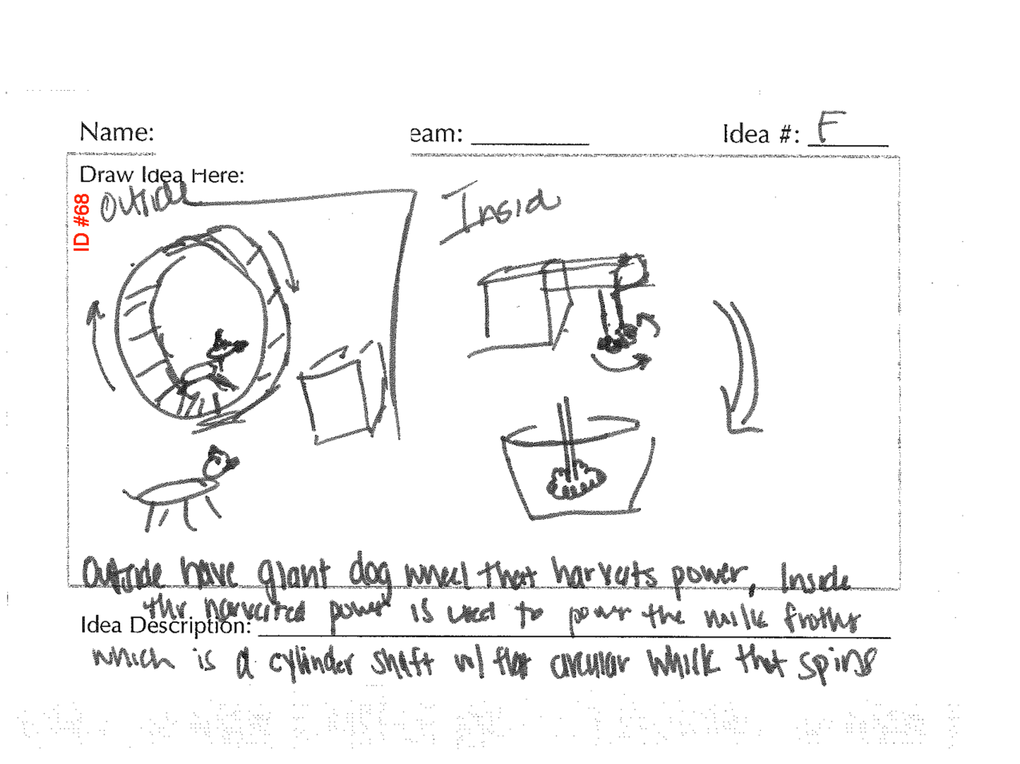 Name:
eam:
Idea #: F
Draw Idea Here:
ID #68
Outside
Insid
Outside have giant dog wheel that harvests power, Inside
the harvested power is used to power the milk frother
Idea Description:
which is a cylinder shaft w/ flat circular whisk that spins